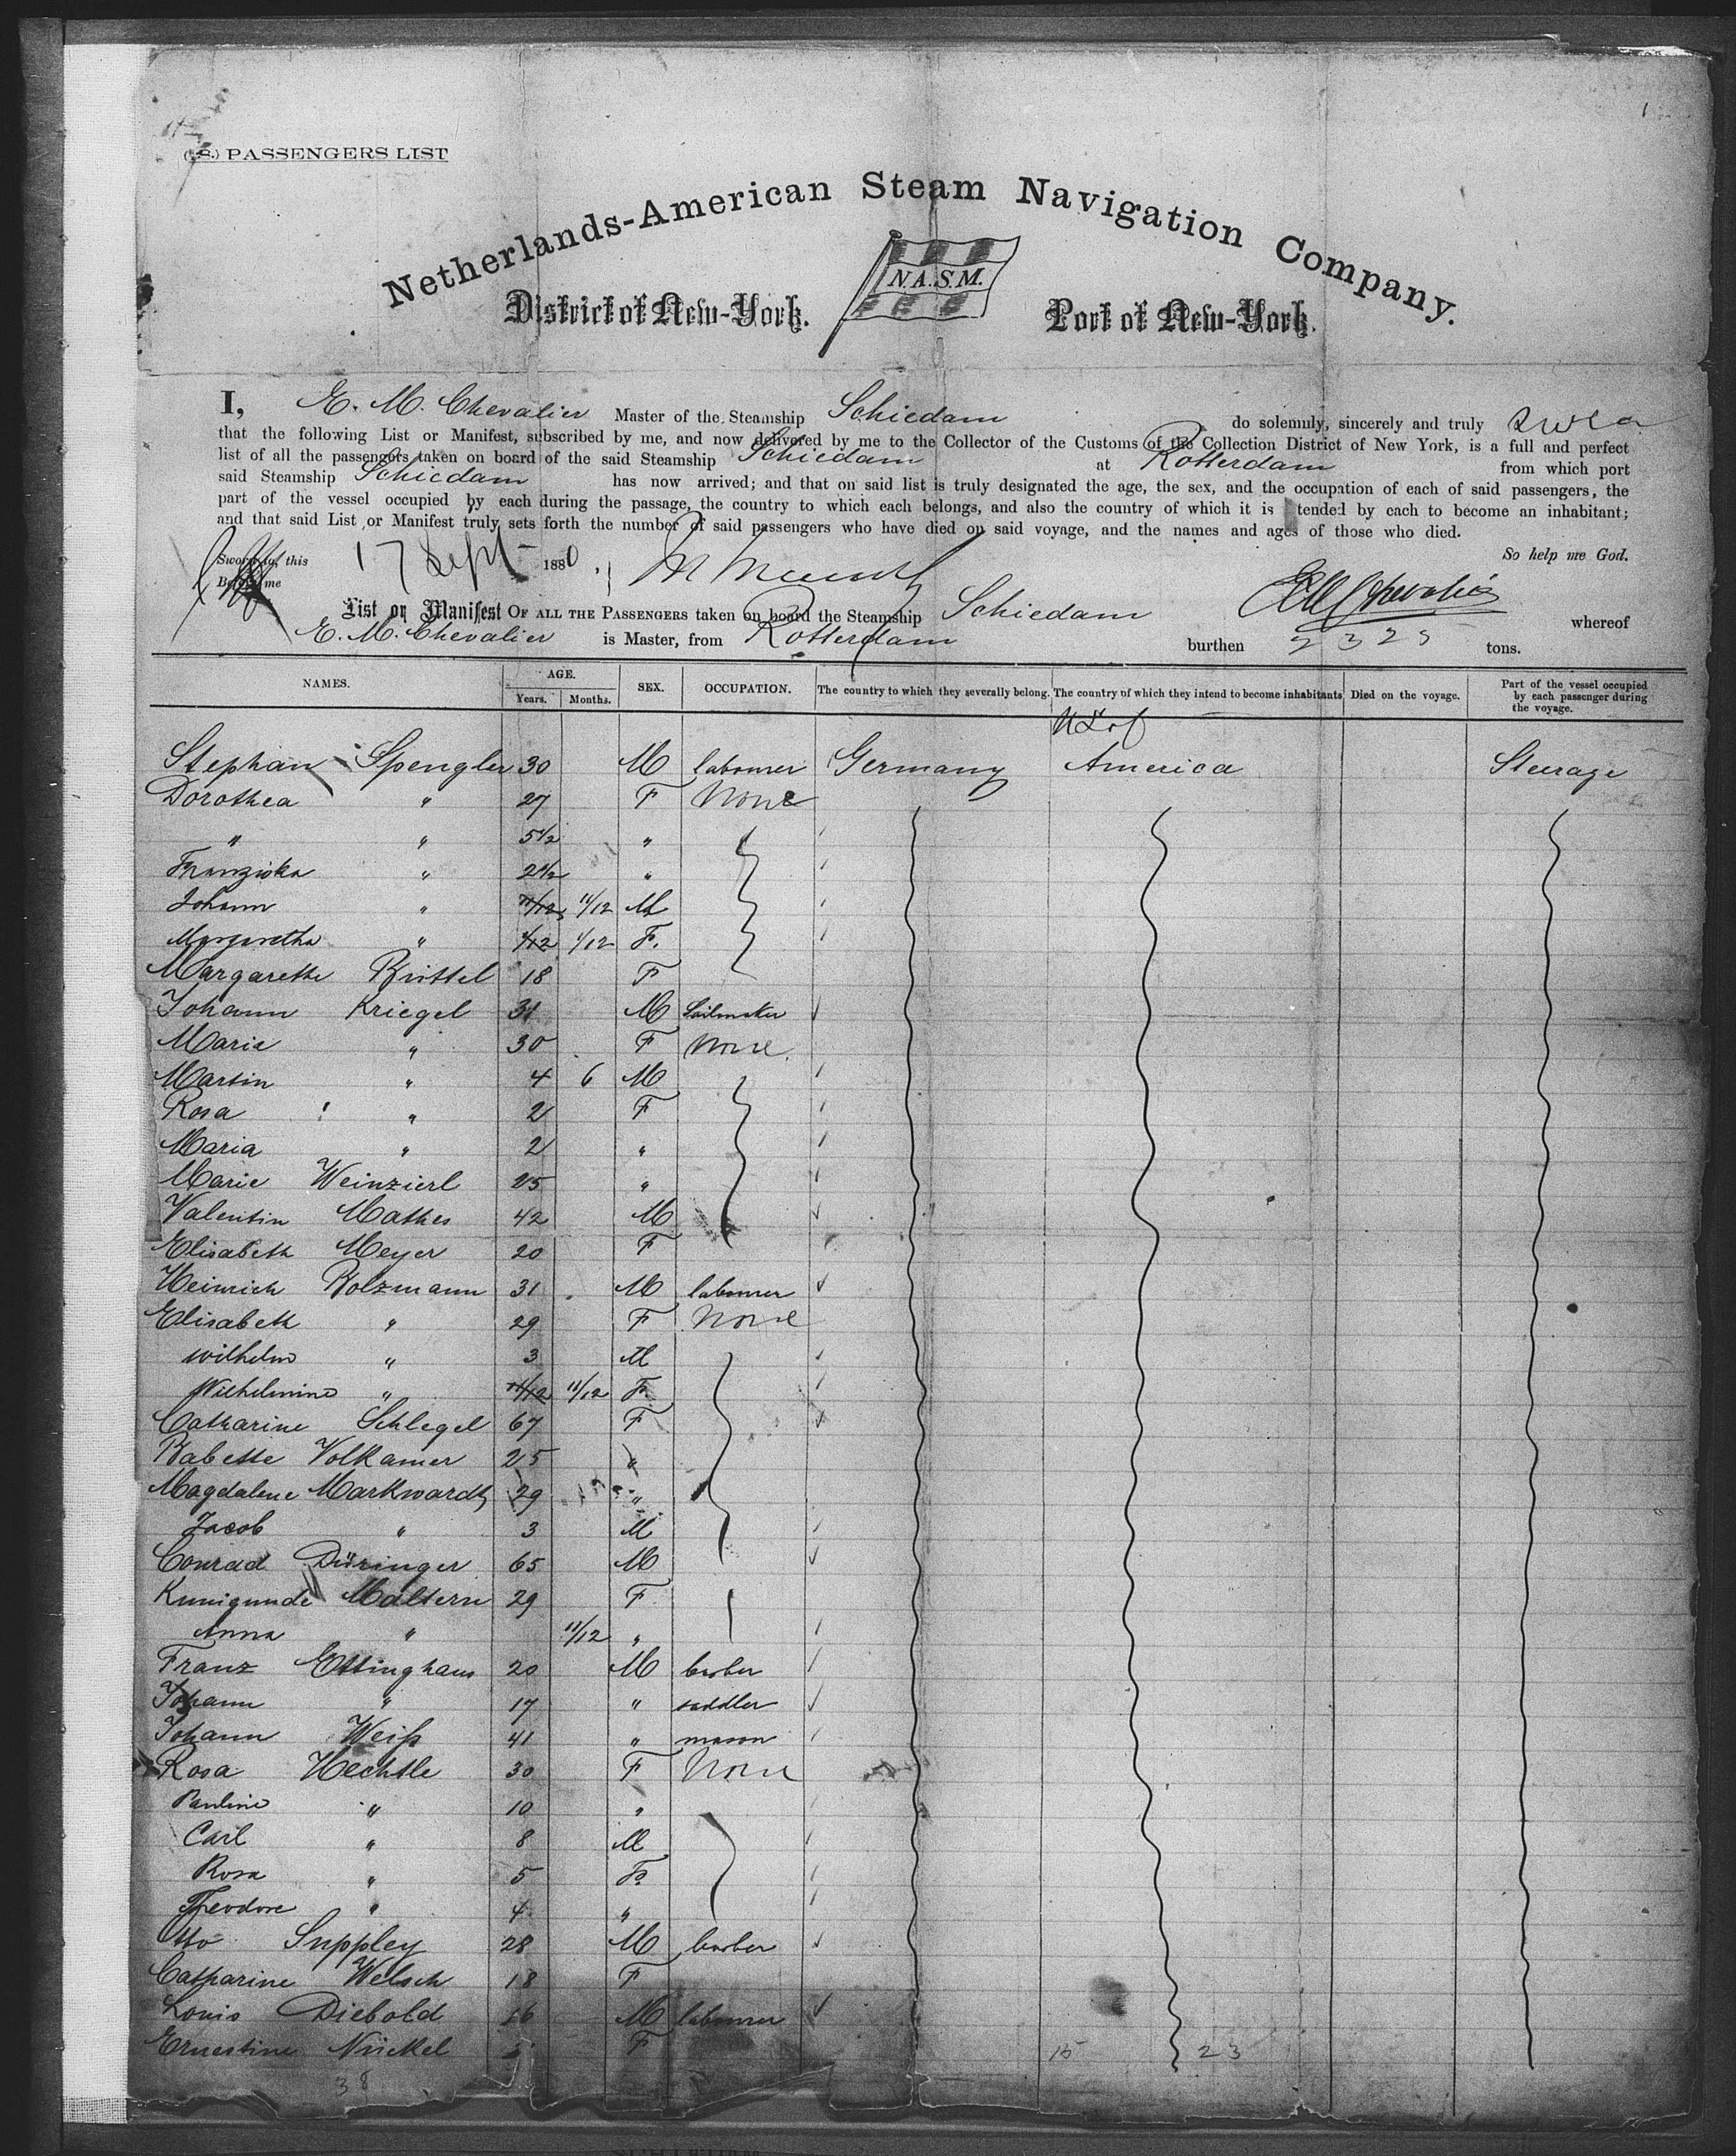 1
(S.) PASSENGERS LIST
Netherlands-American Steam Navigation Company.
District of New-York. N.A.S.M. Port of New-York.
I, E. M. Chevalier Master of the Steamship Schiedam do solemnly, sincerely and truly
that the following List or Manifest, subscribed by me, and now delivered by me to the Collector of the Customs of the Collection District of New York, is a full and perfect
list of all the passengers taken on board of the said Steamship Schiedam at Rotterdam from which port
said Steamship Schiedam has now arrived; and that on said list is truly designated the age, the sex, and the occupation of each of said passengers, the
part of the vessel occupied by each during the passage, the country to which each belongs, and also the country of which it is tended by each to become an inhabitant;
and that said List or Manifest truly sets forth the number of said passengers who have died on said voyage, and the names and ages of those who died.
So help me God.
Sworn to, this 17 Sept 1880
Before me
List or Manifest OF ALL THE PASSENGERS taken on board the Steamship Schiedam whereof
E. M. Chevalier is Master, from Rotterdam burthen 2325 tons.
NAMES. AGE. Years. Months. SEX. OCCUPATION. The country to which they severally belong. The country of which they intend to become inhabitants. Died on the voyage. Part of the vessel occupied by each passenger during the voyage.
U S of
Stephan Spengler 30 M labourer Germany America Steerage
Dorothea " 27 F None
" " 5 1/2 "
Franziska " 2 1/2 "
Johann " 11/12 11/12 M
Margaretha " 1/12 1/12 F.
Margarethe Brittel 18 F
Johann Kriegel 31 M Sailmaker
Maria " 30 F None
Martin " 4 6 M
Rosa " 2 F
Maria " 2 "
Marie Weinzierl 25 "
Valentin Mathes 42 M
Elisabeth Meyer 20 F
Heinrich Bolzmann 31 M labourer
Elisabeth " 29 F None
Wilhelm " 3 M
Wilhelmine " 11/12 11/12 F.
Catharine Schlegel 67 F
Babette Volkamer 25 "
Magdalene Markwardt 29 "
Jacob " 3 M
Conrad Düringer 65 M
Kunigunde Maltern 29 F
Anna " 11/12 "
Franz Ettinghaus 20 M barber
Johann " 17 " saddler
Johann Weiß 41 " mason
Rosa Hechtle 30 F None
Pauline " 10 "
Carl " 8 M
Rosa " 5 F.
Theodore " 4 "
Otto Suppley 28 M barber
Catharine Welsch 18 F
Louis Diebold 16 M labourer
Ernestine Nückel F 15 23
38